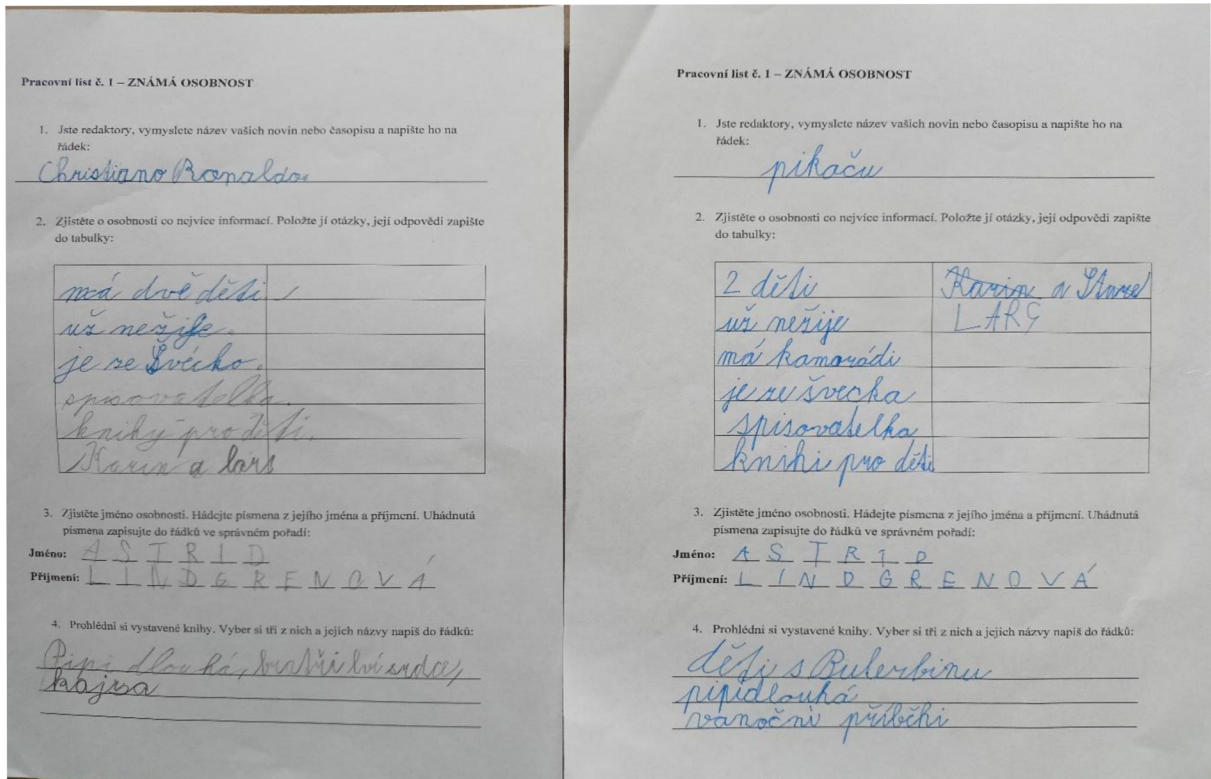 Pracovní list č. 1 – ZNÁMÁ OSOBNOST
1. Jste redaktory, vymyslete název vašich novin nebo časopisu a napište ho na
řádek:
Christiano Ronaldo
2. Zjistěte o osobnosti co nejvíce informací. Položte jí otázky, její odpovědi zapište
do tabulky:
má dvě děti
už nežije.
je ze Švécko.
spisovatelka.
knihy pro děti.
Karin a lars
3. Zjistěte jméno osobnosti. Hádejte písmena z jejího jména a příjmení. Uhádnutá
písmena zapisujte do řádků ve správném pořadí:
Jméno: A S T R I D
Příjmení: L I N D G R E N O V Á
4. Prohlédni si vystavené knihy. Vyber si tři z nich a jejich názvy napiš do řádků:
Pipi dlouhá, bratři lví srdce,
kajsa
Pracovní list č. 1 – ZNÁMÁ OSOBNOST
1. Jste redaktory, vymyslete název vašich novin nebo časopisu a napište ho na
řádek:
pikaču
2. Zjistěte o osobnosti co nejvíce informací. Položte jí otázky, její odpovědi zapište
do tabulky:
2 děti Karin a
už nežije LARS
má kamarádi
je ze švecka
spisovatelka
knihi pro děti
3. Zjistěte jméno osobnosti. Hádejte písmena z jejího jména a příjmení. Uhádnutá
písmena zapisujte do řádků ve správném pořadí:
Jméno: A S T R I D
Příjmení: L I N D G R E N O V Á
4. Prohlédni si vystavené knihy. Vyber si tři z nich a jejich názvy napiš do řádků:
děti s Bulerbinu
pipidlouhá
vanoční příběhi